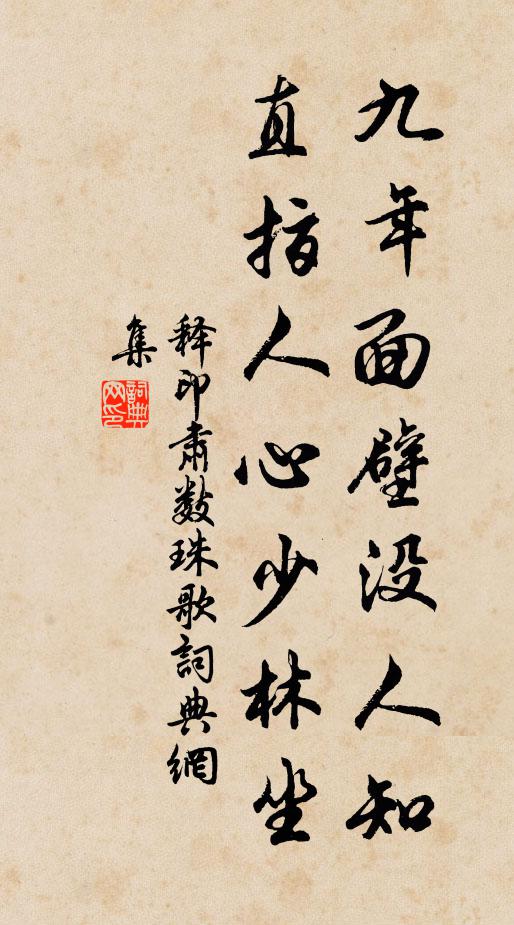 九年面壁没人知
直指人心少林坐
释印肃数珠歌詞典網
集
詞典網印